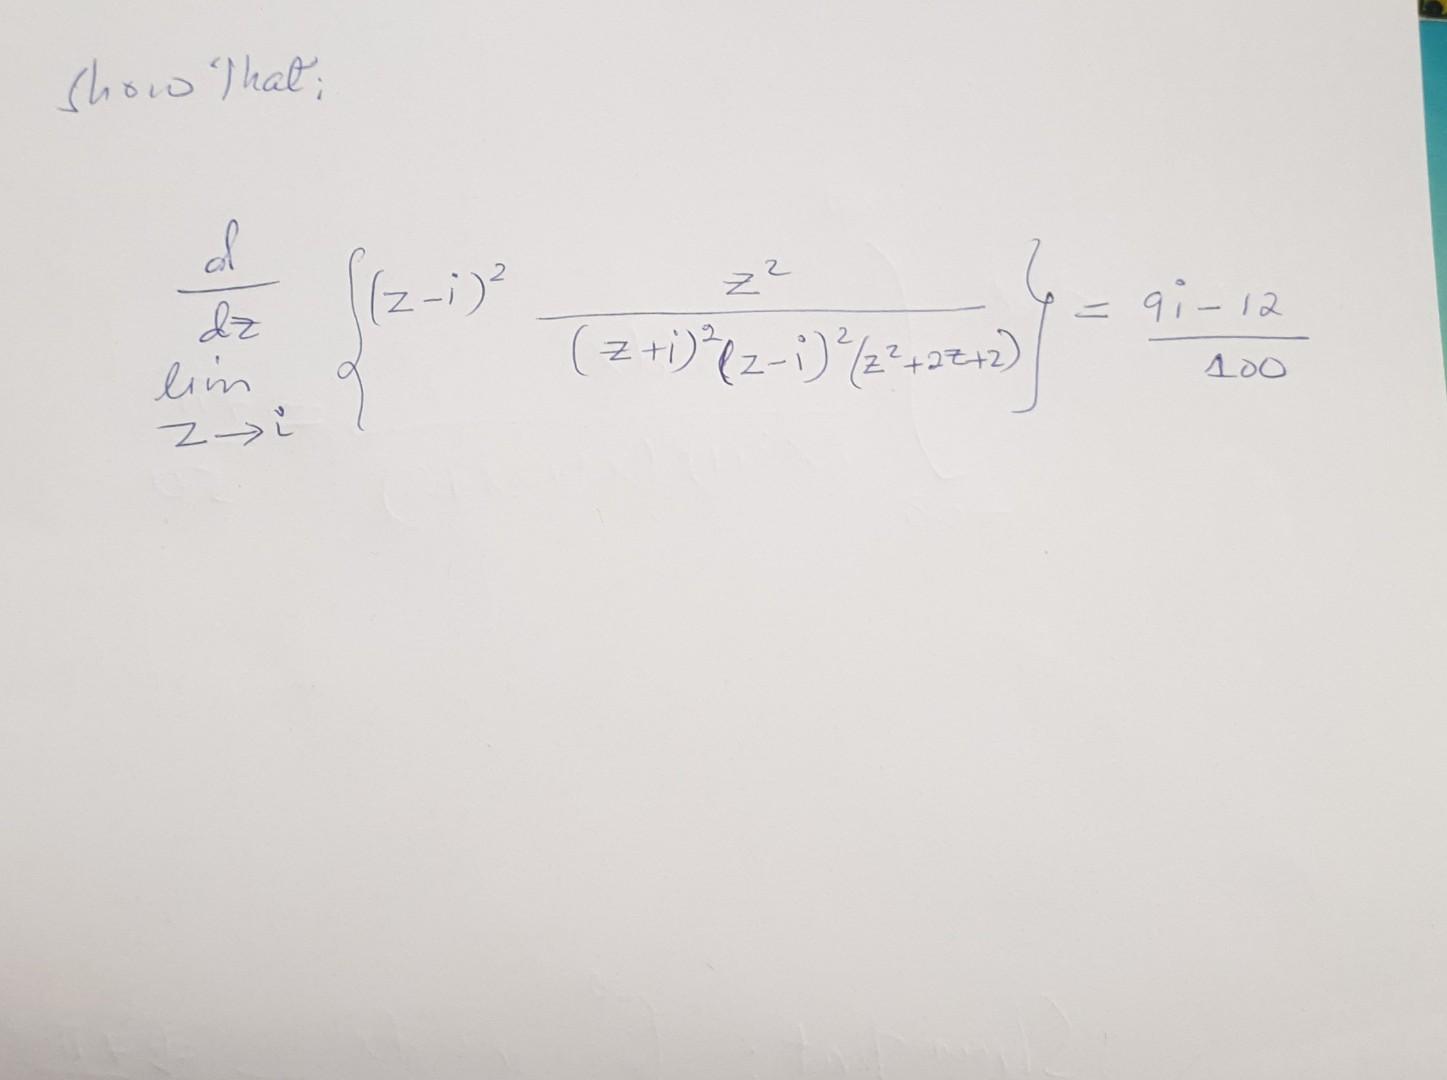 Show That;
d/dz lim z→i {(z-i)² z²/((z+i)²(z-i)²(z²+2z+2))} = (9i-12)/100